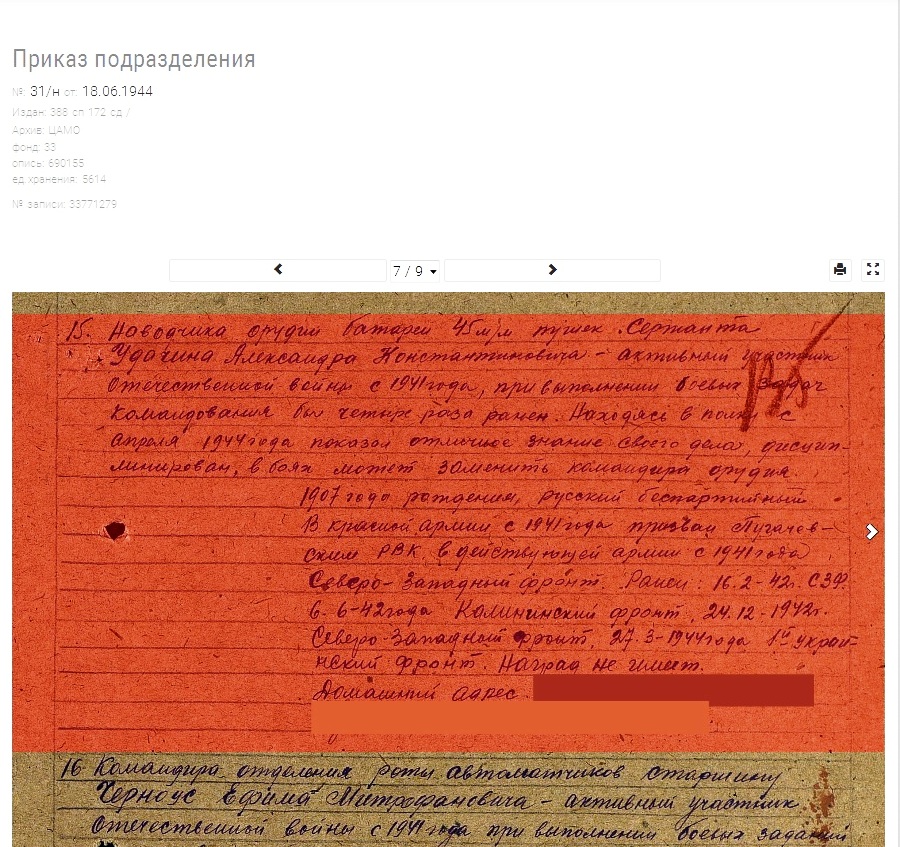 Приказ подразделения
№: 31/н от: 18.06.1944
Издан: 388 сп 172 сд /
Архив: ЦАМО
фонд: 33
опись: 690155
ед.хранения: 5614
№ записи: 33771279
7 / 9
15. Наводчика орудии батареи 45 м/м пушек Сержанта
Удачина Александра Константиновича - активный участник
Отечественной войны с 1941 года, при выполнении боевых задач
командования был четыре раза ранен. Находясь в полку с
апреля 1944 года показал отличное знание своего дела, дисцип-
линирован, в боях может заменить командира орудия.
1907 года рождения, русский беспартийный
В красной армии с 1941 года призван Пугачев-
ским РВК, в действующей армии с 1941 года
Северо-Западный фронт. Ранен: 16.2-42г. СЗФ.
6.6-42 года Калининский фронт, 24.12-1942г.
Северо-Западный фронт, 27.3-1944 года 1й украи-
нский фронт. Наград не имеет.
Домашний адрес
16 Командира отделения роты автоматчиков старшину
Черноус Ефима Митрофановича - активный участник
Отечественной войны с 1941 года при выполнении боевых заданий